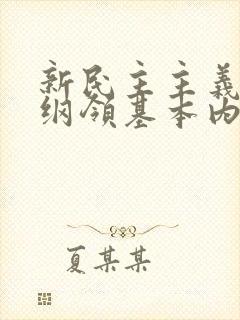 新民主主義
纲領基本内
夏某某